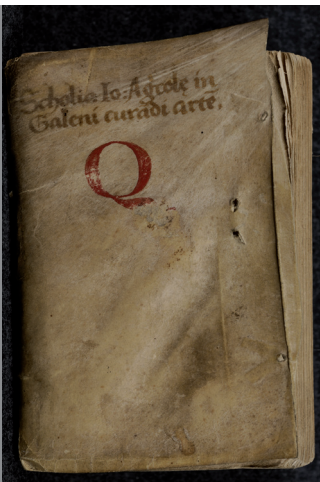 Scholia Io: Agricolę in
Galeni curādi artē.
Q